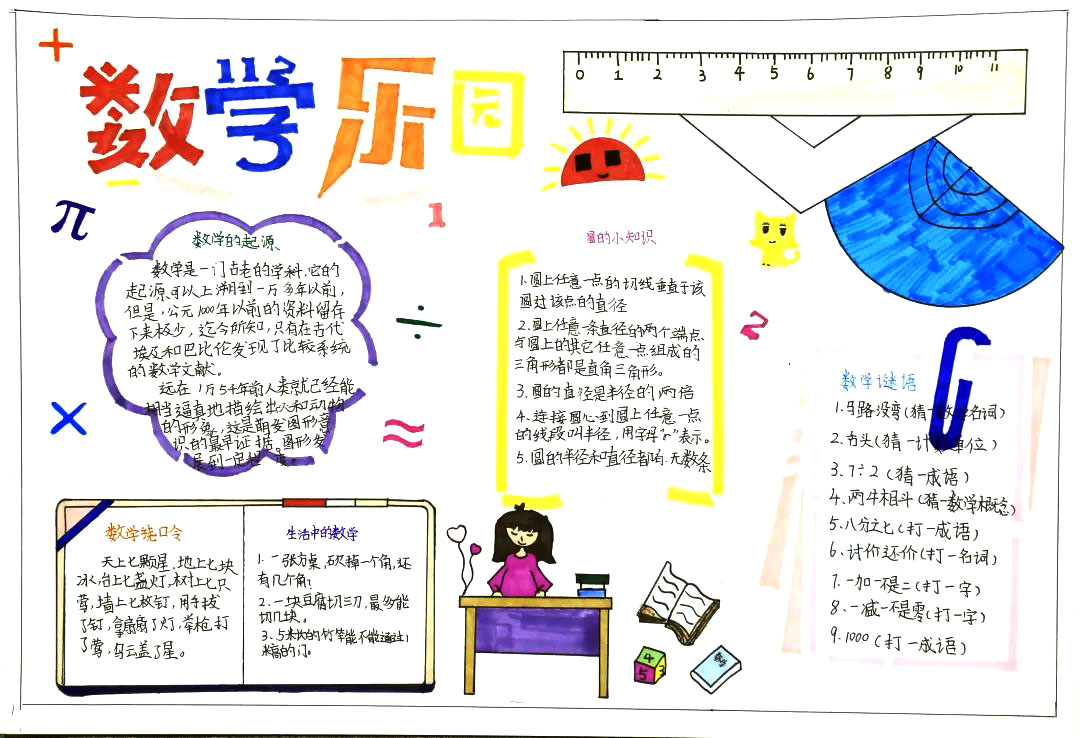 +
数学乐园
112
0 1 2 3 4 5 6 7 8 9 10 11
π
1
数学的起源
数学是一门古老的学科,它的
起源可以上溯到一万多年以前,
但是,公元1000年以前的资料留存
下来极少,迄今所知,只有在古代
埃及和巴比伦发现了比较系统
的数学文献。
远在1万5千年前人类就已经能
相当逼真地描绘出人和动物
的形象,这是萌发图形意
识的最早证据。图形发
展到一定程度。
÷
×
≈
2
圆的小知识
1.圆上任意一点的切线垂直于该
圆过该点的直径
2.圆上任意一条直径的两个端点
与圆上的其它任意一点组成的
三角形都是直角三角形。
3.圆的直径是半径的两倍
4.连接圆心到圆上任意一点
的线段叫半径,用字母“r”表示。
5.圆的半径和直径都有无数条
数学谜语
1.马路没弯(猜一数学名词)
2.(猜一计数单位)
3.7÷2(猜一成语)
4.两牛相斗(猜一数学概念)
5.八分之七(打一成语)
6.讨价还价(打一名词)
7.一加一不是二(打一字)
8.一减一不是零(打一字)
9.1000(打一成语)
数学绕口令
天上七颗星,地上七块
冰,台上七盏灯,树上七只
莺,墙上七枚钉,用手拔
了钉,拿扇扇了灯,举枪打
了莺,乌云盖了星。
生活中的数学
1.一张方桌,砍掉一个角,还
有几个角?
2.一块豆腐切三刀,最多能
切几块。
3.5米长的竹竿能不能通过1
米高的门。
4
5 3
数学